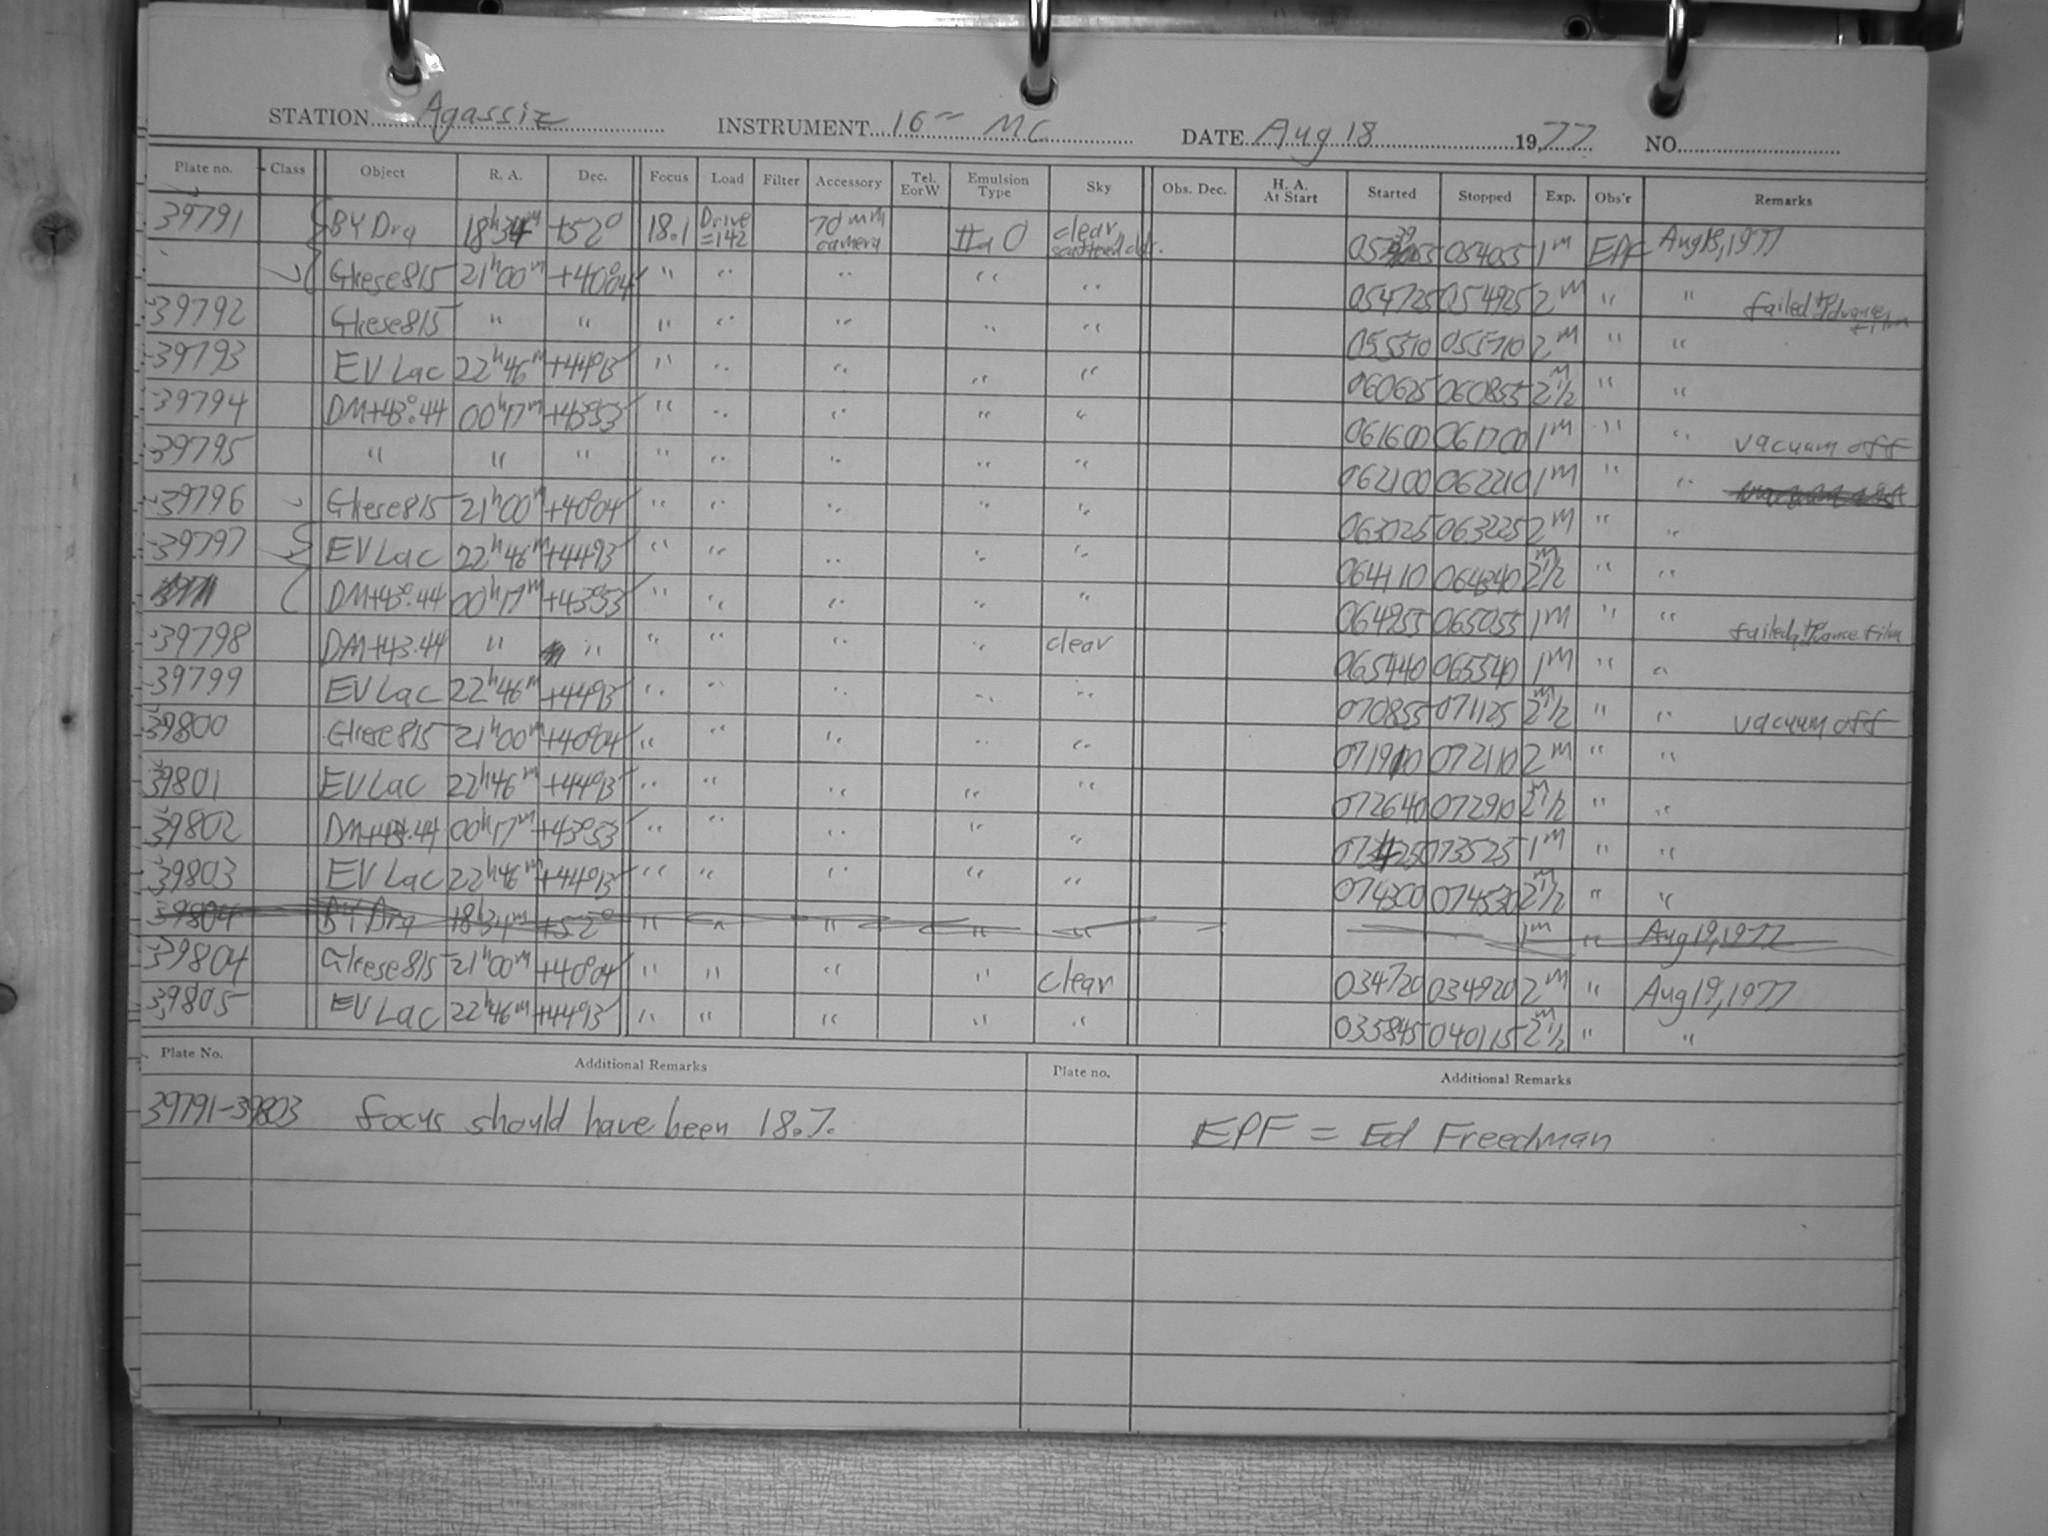 STATION Agassiz INSTRUMENT 16" MC DATE Aug 18 1977 NO.
Plate no. Class Object R. A. Dec. Focus Load Filter Accessory Tel. E or W Emulsion Type Sky Obs. Dec. H. A. At Start Started Stopped Exp. Obs'r Remarks
39791 BY Dra 18h34m +52° 18.1 Drive =142 70mm camera IIaO clear 054055 1m EPF Aug 18, 1977
Gliese815 21h00m +40°04' " " " " " 054725 054925 2m " " failed to advance film
39792 Gliese815 " " " " " " " 055510 055710 2m " "
39793 EV Lac 22h46m +44°93' " " " " " 060625 060855 2 1/2m " "
39794 DM+43°.44 00h17m +43°53' " " " " " 061600 061700 1m " " vacuum off
39795 " " " " " " " " 062100 062210 1m " "
39796 Gliese815 21h00m +40°04' " " " " " 063025 063225 2m " "
39797 EV Lac 22h46m +44°93' " " " " " 064110 064340 2 1/2m " "
DM+43°.44 00h17m +43°53' " " " " " 064955 065055 1m " " failed to advance film
39798 DM+43.44 " " " " " " clear 065440 065540 1m " "
39799 EV Lac 22h46m +44°93' " " " " " 070855 071125 2 1/2m " " vacuum off
39800 Gliese815 21h00m +40°04' " " " " " 071910 072110 2m " "
39801 EV Lac 22h46m +44°93' " " " " " 072640 072910 2 1/2m " "
39802 DM+43.44 00h17m +43°53' " " " " " 073425 073525 1m " "
39803 EV Lac 22h46m +44°93' " " " " " 074300 074530 2 1/2m " "
39804 BY Dra 18h34m +52° " " " " " 1m " Aug 19, 1977
39804 Gliese815 21h00m +40°04' " " " " clear 034720 034920 2m " Aug 19, 1977
39805 EV Lac 22h46m +44°93' " " " " " 035845 040115 2 1/2m " "
Plate No. Additional Remarks Plate no. Additional Remarks
39791-39803 focus should have been 18.7. EPF = Ed Freedman